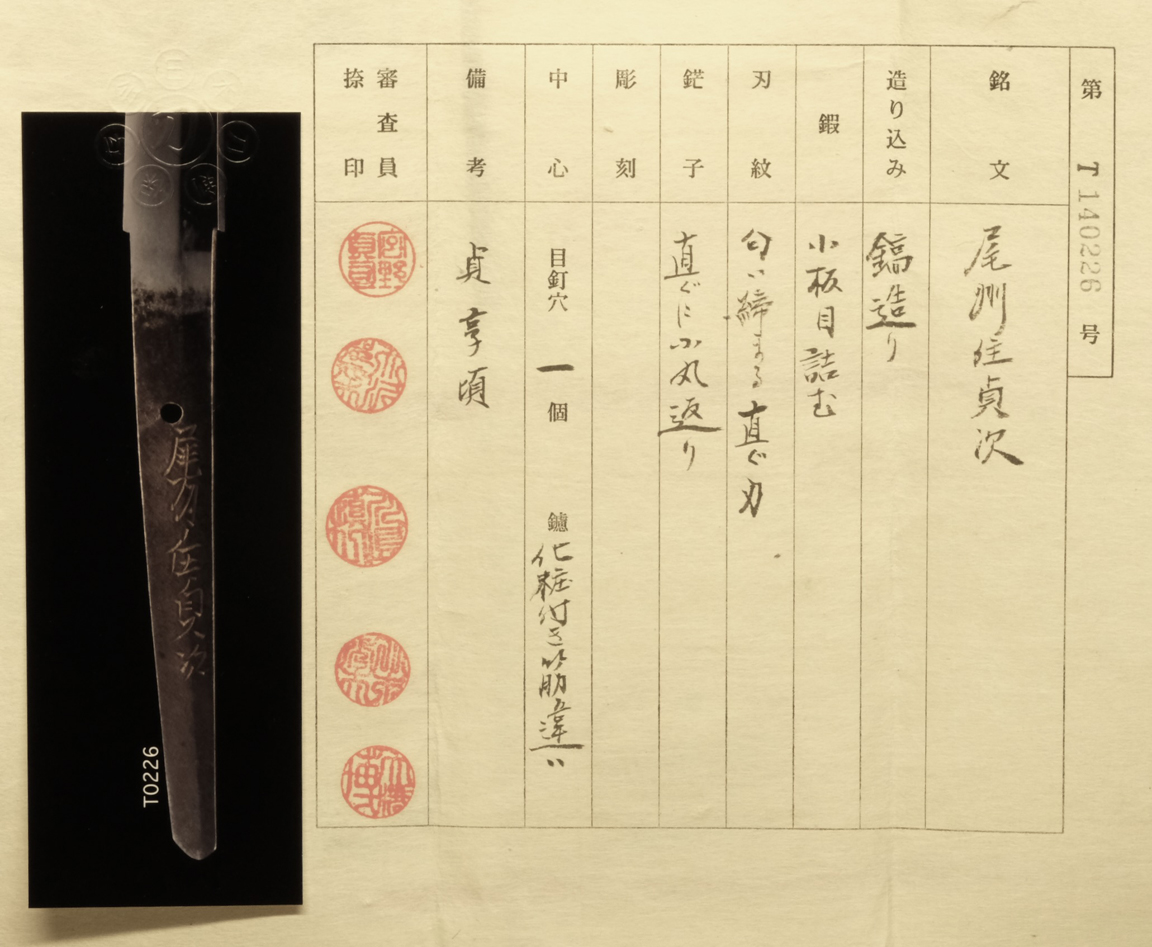 第 T 140226 号
銘文
尾州住貞次
造り込み
鎬造り
鍜
小板目詰む
刃紋
匂い締まる直ぐ刃
鋩子
直ぐに小丸返り
彫刻
中心
目釘穴 一 個 鑢 化粧付き筋違い
備考
貞享頃
審査員
捺印
尾州住貞次
T0226